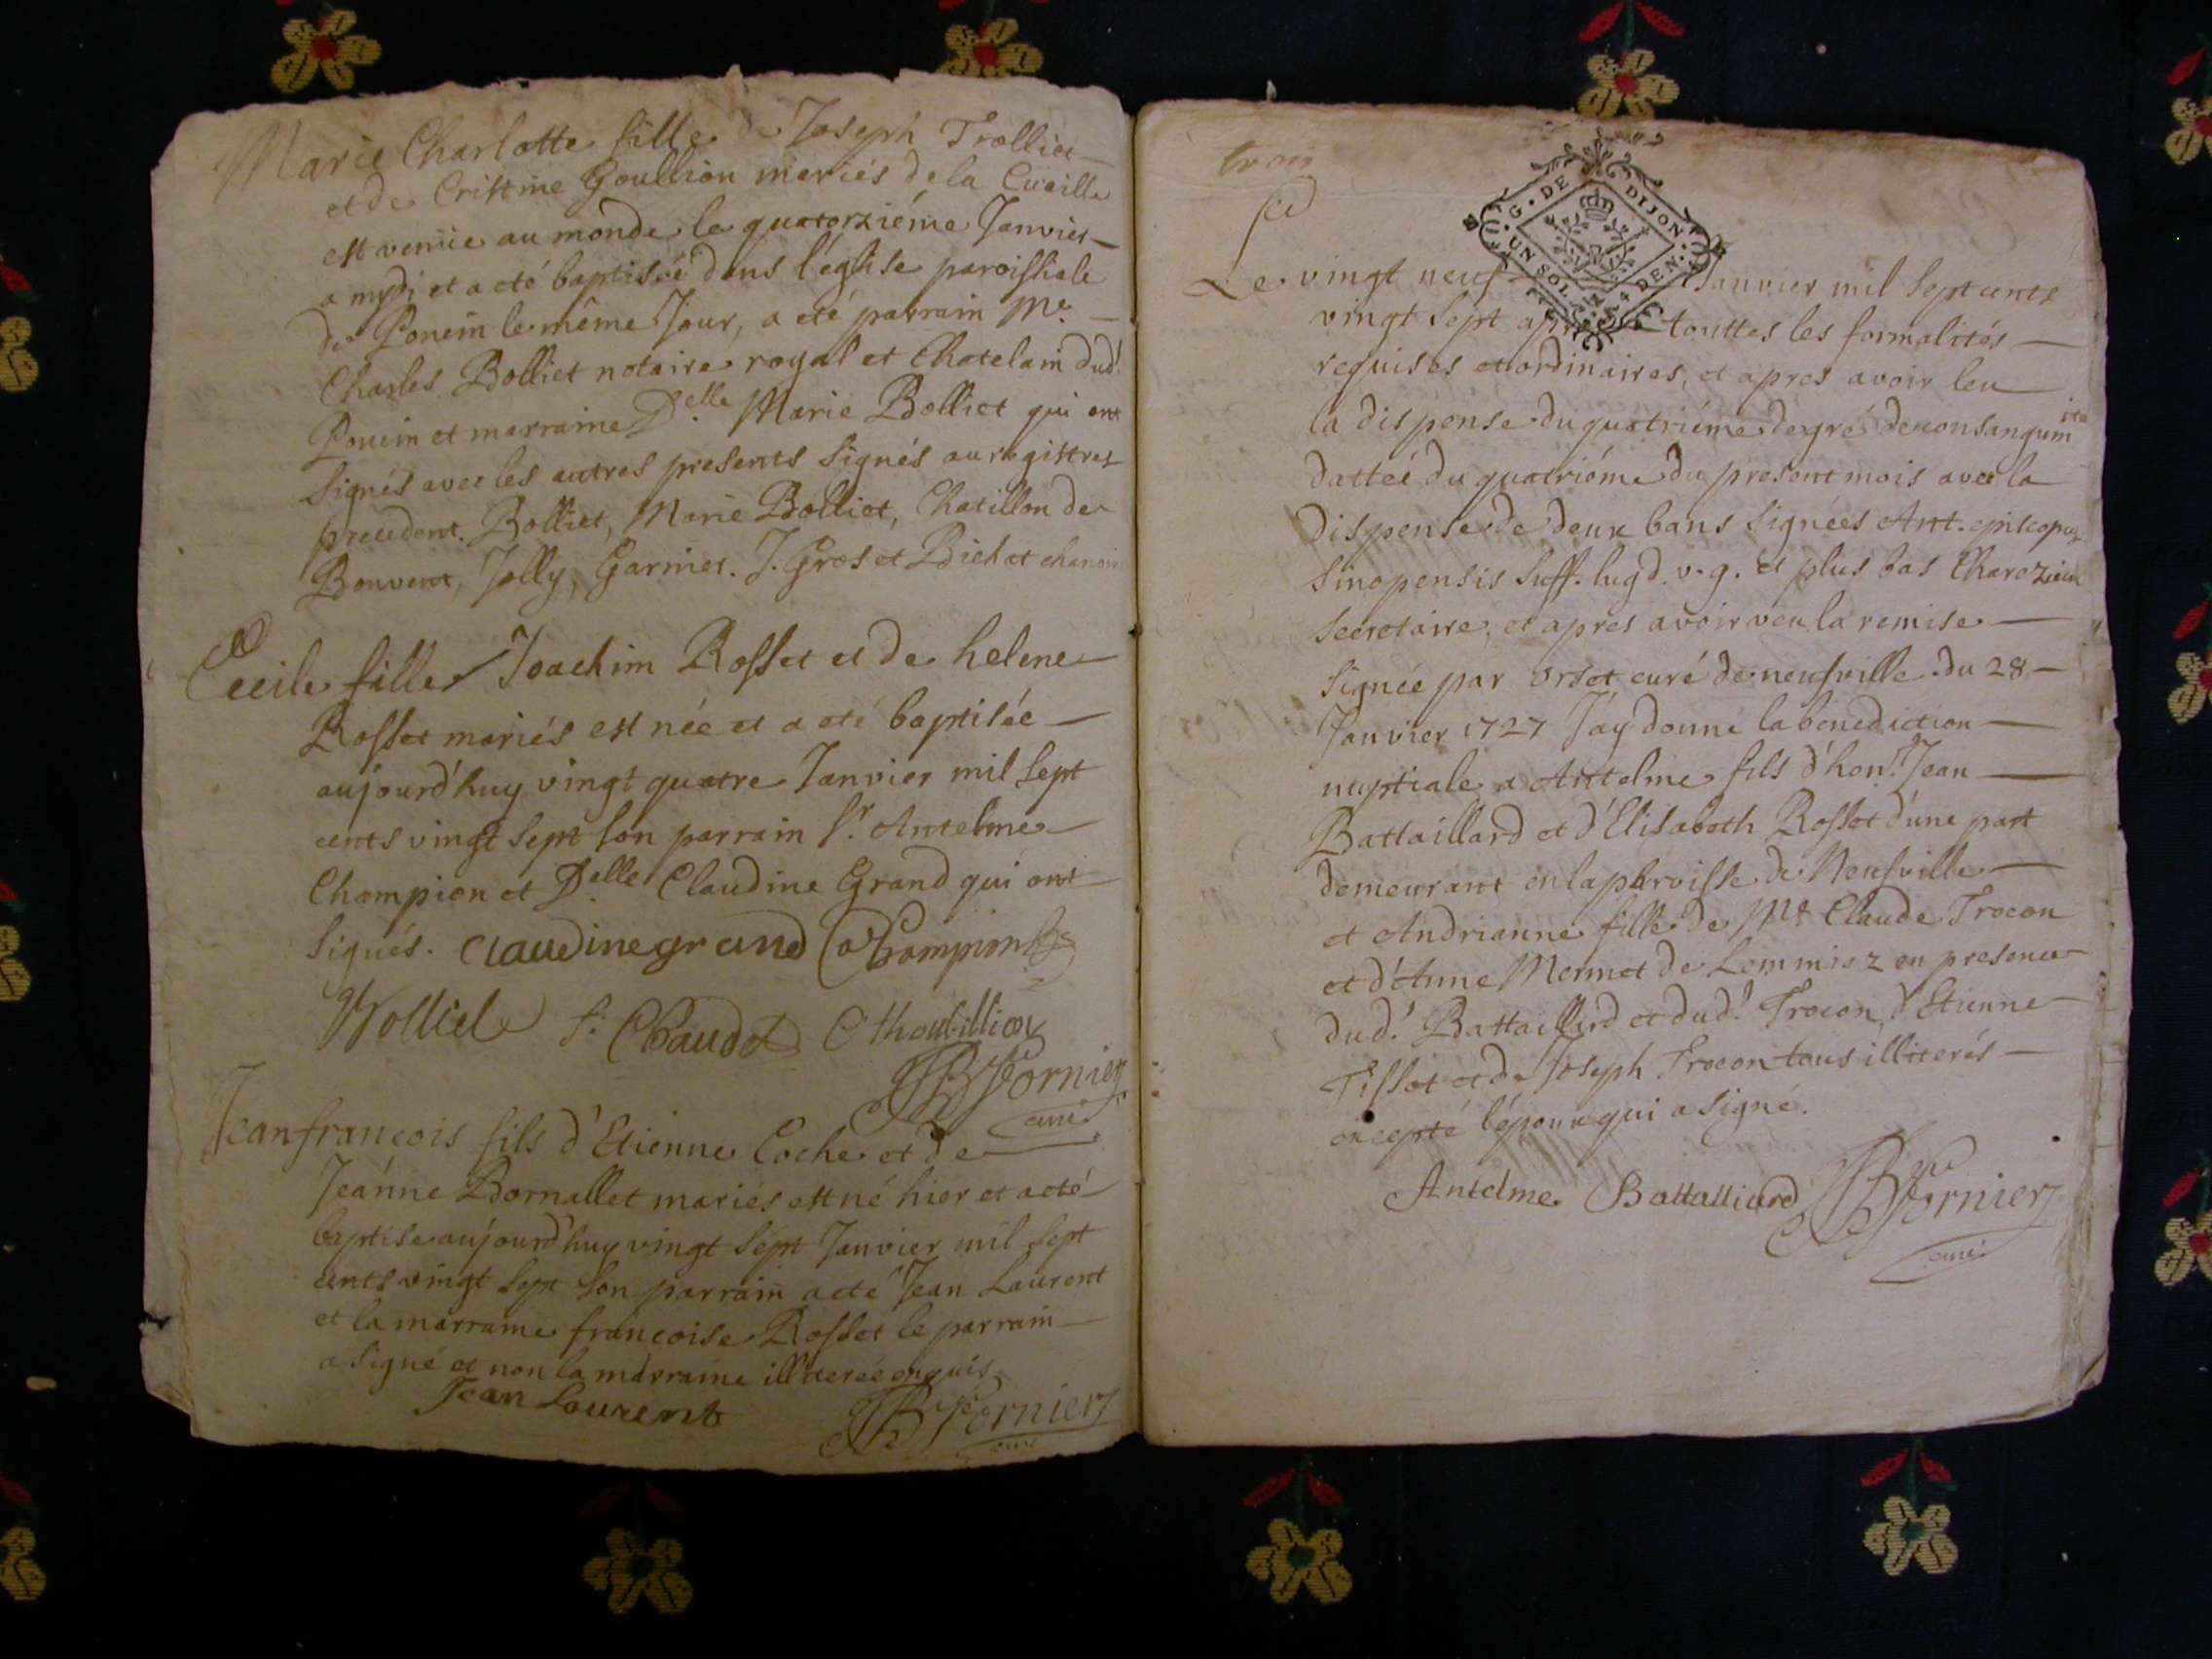 Marie Charlotte fille de Joseph Trolliet
et de Cristine Goullion mariés de la Cueille
est venüe au monde le quatorziéme Janvier
a mydi et a eté baptisée dans l'église paroissiale
de Poncin le même Jour, a eté parrain Me.
Charles Bolliet notaire royal et Chatelain dud.t
Poncin et marraine D.elle Marie Bolliet qui ont
signés avec les autres presents signés au registres
precedent. Bolliet, Marie Bolliet, Chatillon de
Bonvent, Jolly, Garnier. J. Gros et Bichat chanoi
Cecile fille Joachim Rosset et de helene
Rosset mariés est née et a eté baptisée
aujourd'huy vingt quatre Janvier mil sept
cents vingt sept son parrain Sr. Antelme
Champion et D.elle Claudine Grand qui ont
signés. Claudine grand Champion
S. Chaudet
JB Fornier
curé
Jean francois fils d'Etienne Coche et de
Jeanne Bornallet mariés est né hier et a eté
baptise aujourd'huy vingt sept Janvier mil sept
cents vingt sept son parrain a eté Jean Laurent
et la marraine francoise Rosset le parrain
a signé et non la marraine illiterée enquis
Jean Laurent JB Fornier
curé
trois
G. DE DIJON.
UN SOL. 4 DEN.
Le vingt neuf Janvier mil sept cents
vingt sept apres touttes les formalités
requises et ordinaires, et apres avoir leu
la dispense du quatriéme degré de consanguinité
dattée du quatriéme du present mois avec la
dispense de deux bans signées Ant. episcopus
Sinopensis suff. lugd. v.g. et plus bas
secretaire, et apres avoir veu la remise
signée par orset curé de neufville du 28
Janvier 1727 J'ay donné la benediction
nuptiale a Antelme fils d'hon.t Jean
Battaillard et d'Elisabeth Rosset d'une part
demeurant en la parroisse de Neufville
et Andrianne fille de Me Claude Trocon
et d'Anne Mermet de Lemmiez en presence
dud.t Battaillard et dud.t Trocon, d'Etienne
Tissot et de Joseph Trocon tous illiterés
excepté l'époux qui a signé.
Antelme Battalliard JB Fornier
curé